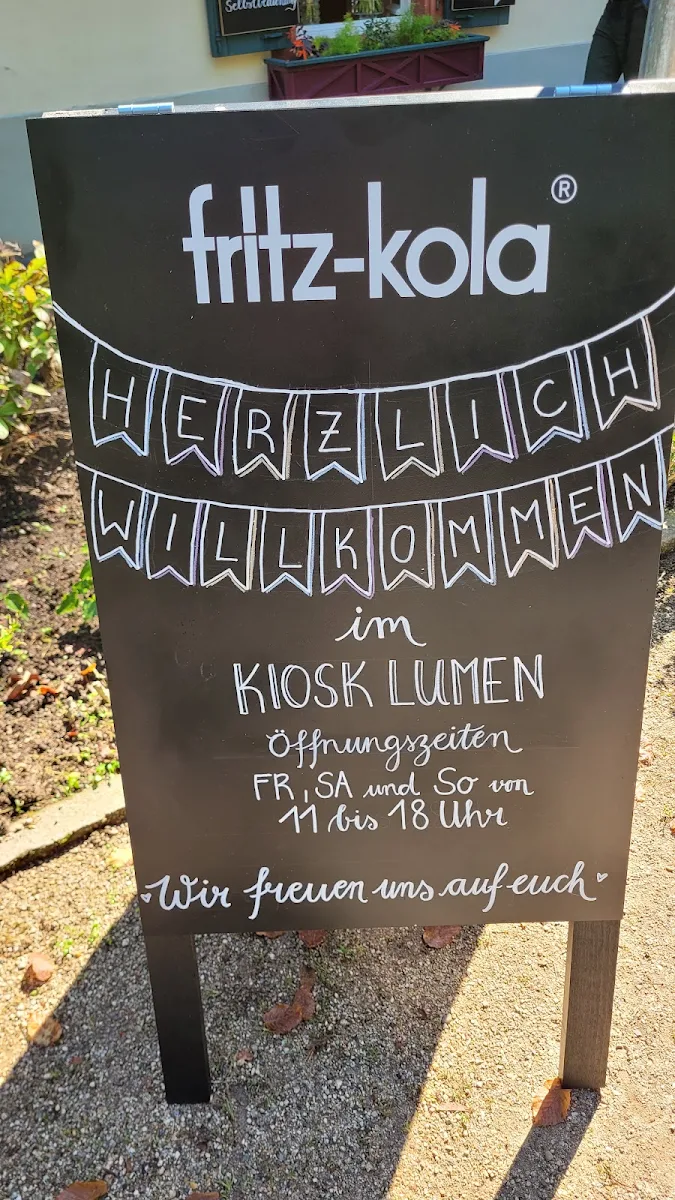 Selbstbedienung
fritz-kola®
HERZLICH
WILLKOMMEN
im
KIOSK LUMEN
Öffnungszeiten
FR, SA und So von
11 bis 18 Uhr
Wir freuen uns auf euch